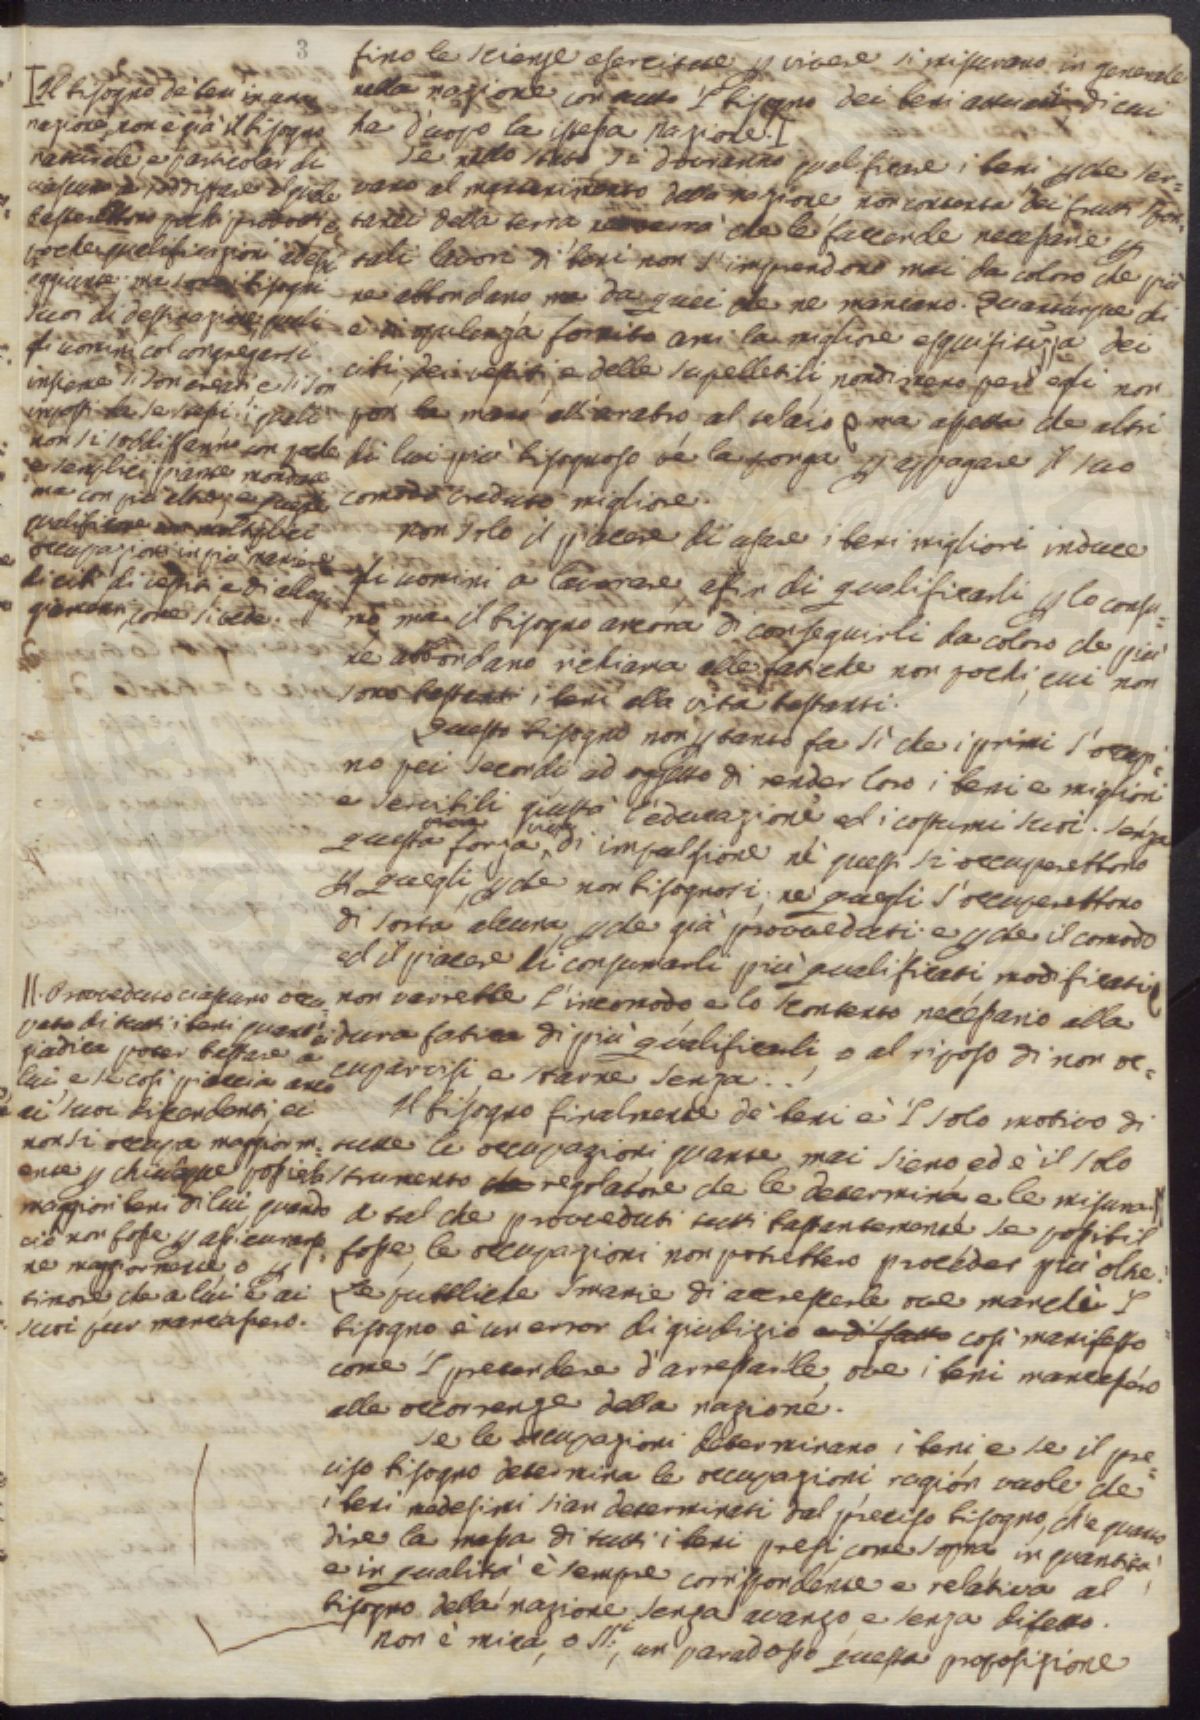 3
fino le scienze esercitate p vivere si misurano in generale
nella nazione con tutto 'l bisogno dei beni attuali, di cui
ha d'uopo la istessa nazione. I
Se nello stato si dovranno qualificare i beni p che ser-
vano al mantenimento della nazione non contenta dei frutti spon-
tanei della terra che le faccende necessarie p
tali lavori di beni non s'imprendono mai da coloro che più
ne abbondano ma da quei che ne mancano. Quantunque di
è in opulenza fornito ami la migliore esquisitezza dei
cibi, dei vestiti, e delle supellettili, nondimeno però egli non
pon la mano all'aratro al telaio, ma aspetta che altri
di lui più bisognoso ve la ponga p appagare il suo
comodo creduto migliore.
Non solo il piacere di usare i beni migliori induce
gli uomini a lavorare, afin di qualificarli p lo consu-
mo, ma il bisogno ancora di conseguirli da coloro che più
ne abbondano richiama alle fatiche non pochi, cui non
sono i beni alla vita bastanti.
Questo bisogno non p tanto fa sì che i primi s'occupi-
no pei secondi ad oggetto di render loro i beni e migliori
e servibili giusta l'educazione ed i costumi suoi. Senza
questa forza di impulsione nè questi si occuperebbono
p quegli, p che non bisognosi; nè quegli s'occuperebbono
di sorta alcuna, p che già provveduti: e p che il comodo
ed il piacere di consumarli più qualificati modificati
non varrebbe l'incomodo e lo scontento necessario alla
dura fatica di più qualificarli, o al riposo di non oc-
cuparvisi, e starne senza..
Il bisogno finalmente de' beni è 'l solo motivo di
tutte le occupazioni quante mai sieno ed è il solo
strumento regolatore che le determina e le misura
a tal che proveduti tutti bastantemente se possibil
fosse, le occupazioni non potrebbero proceder più oltre.
Le pubbliche smanie di accrescerle ove manchi 'l
bisogno è un error di giudizio e di fatto così manifesto
come 'l pretendere d'arrestarle, ove i beni mancassero
alle occorrenze della nazione.
Se le occupazioni determinano i beni e se il pre-
ciso bisogno determina le occupazioni ragion vuole che
i beni medesimi sian determinati dal preciso bisogno, ch'è quanto
dire la massa di tutti i beni presi, come sopra in quantità
e in qualità è sempre corrispondente e relativa al
bisogno della nazione senza avanzo, e senza difetto.
Non è mica, o SSri, un paradosso questa proposizione
I Il bisogno de' beni in una
nazione, non è già il bisogno
naturale e particolar di
ciascuno a soddisfare il quale
basterebbono pochi prodotti e
poche qualificazioni ad essi
aggiunte: ma
suoi di destinazione, quali
gli uomini col congregarsi
insieme si son creati e si son
imposti da se stessi: i quali
non si soddisfanno con poche
e semplici piante
ma con più altre, e queste
qualificate con moltiplici
occupazioni in più maniere
di cibi di vestiti e di allog-
giamenti, come si vede.
II. Proveduto ciascuno occu-
pato di tutti i beni quanti ei
giudica poter bastare a
lui, e se così piaccia anco
ai suoi dipendenti, ei
non si occupa maggiorm-
ente p chiunque possieda
maggiori beni di lui, quando
ciò non fosse p assicurarse-
ne maggiormente o p
timore che a lui e ai
suoi pur mancassero.